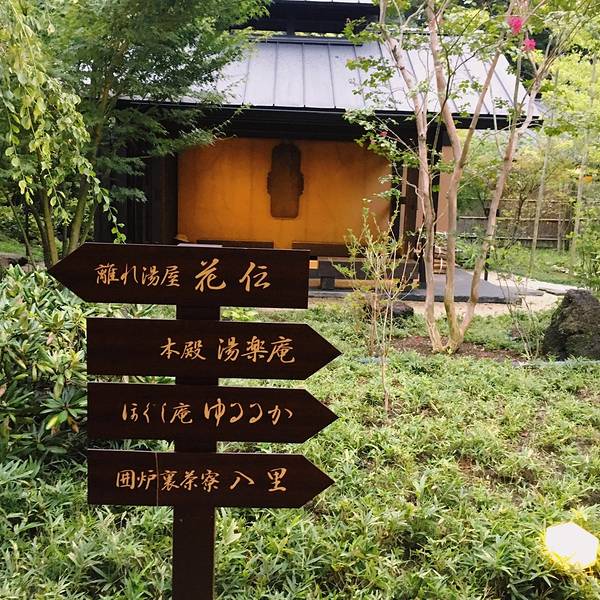 離れ湯屋 花伝
本殿 湯楽庵
ほぐし庵 ゆるるか
囲炉裏茶寮 八里